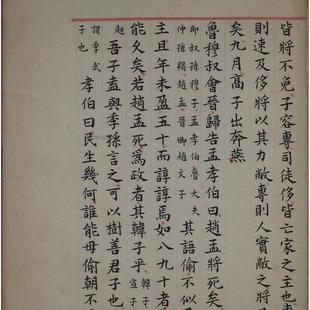 皆將不免子容專司徒侈皆亡家之主也
則速及侈將以其力敝專則人實敝之將
矣九月高子出奔燕
魯穆叔會晉歸告孟孝伯曰趙孟將死矣
即叔孫穆子孟孝伯魯大夫
仲孫羯趙孟晉卿趙文子
其語偷不似
主且年未盈五十而諄諄焉如八九十者
能久矣若趙孟死為政者其韓子乎
韓子
宣子
起
吾子盍與季孫言之可以樹善君子也
謂季武
子也
孝伯曰民生幾何誰能毋偷朝不